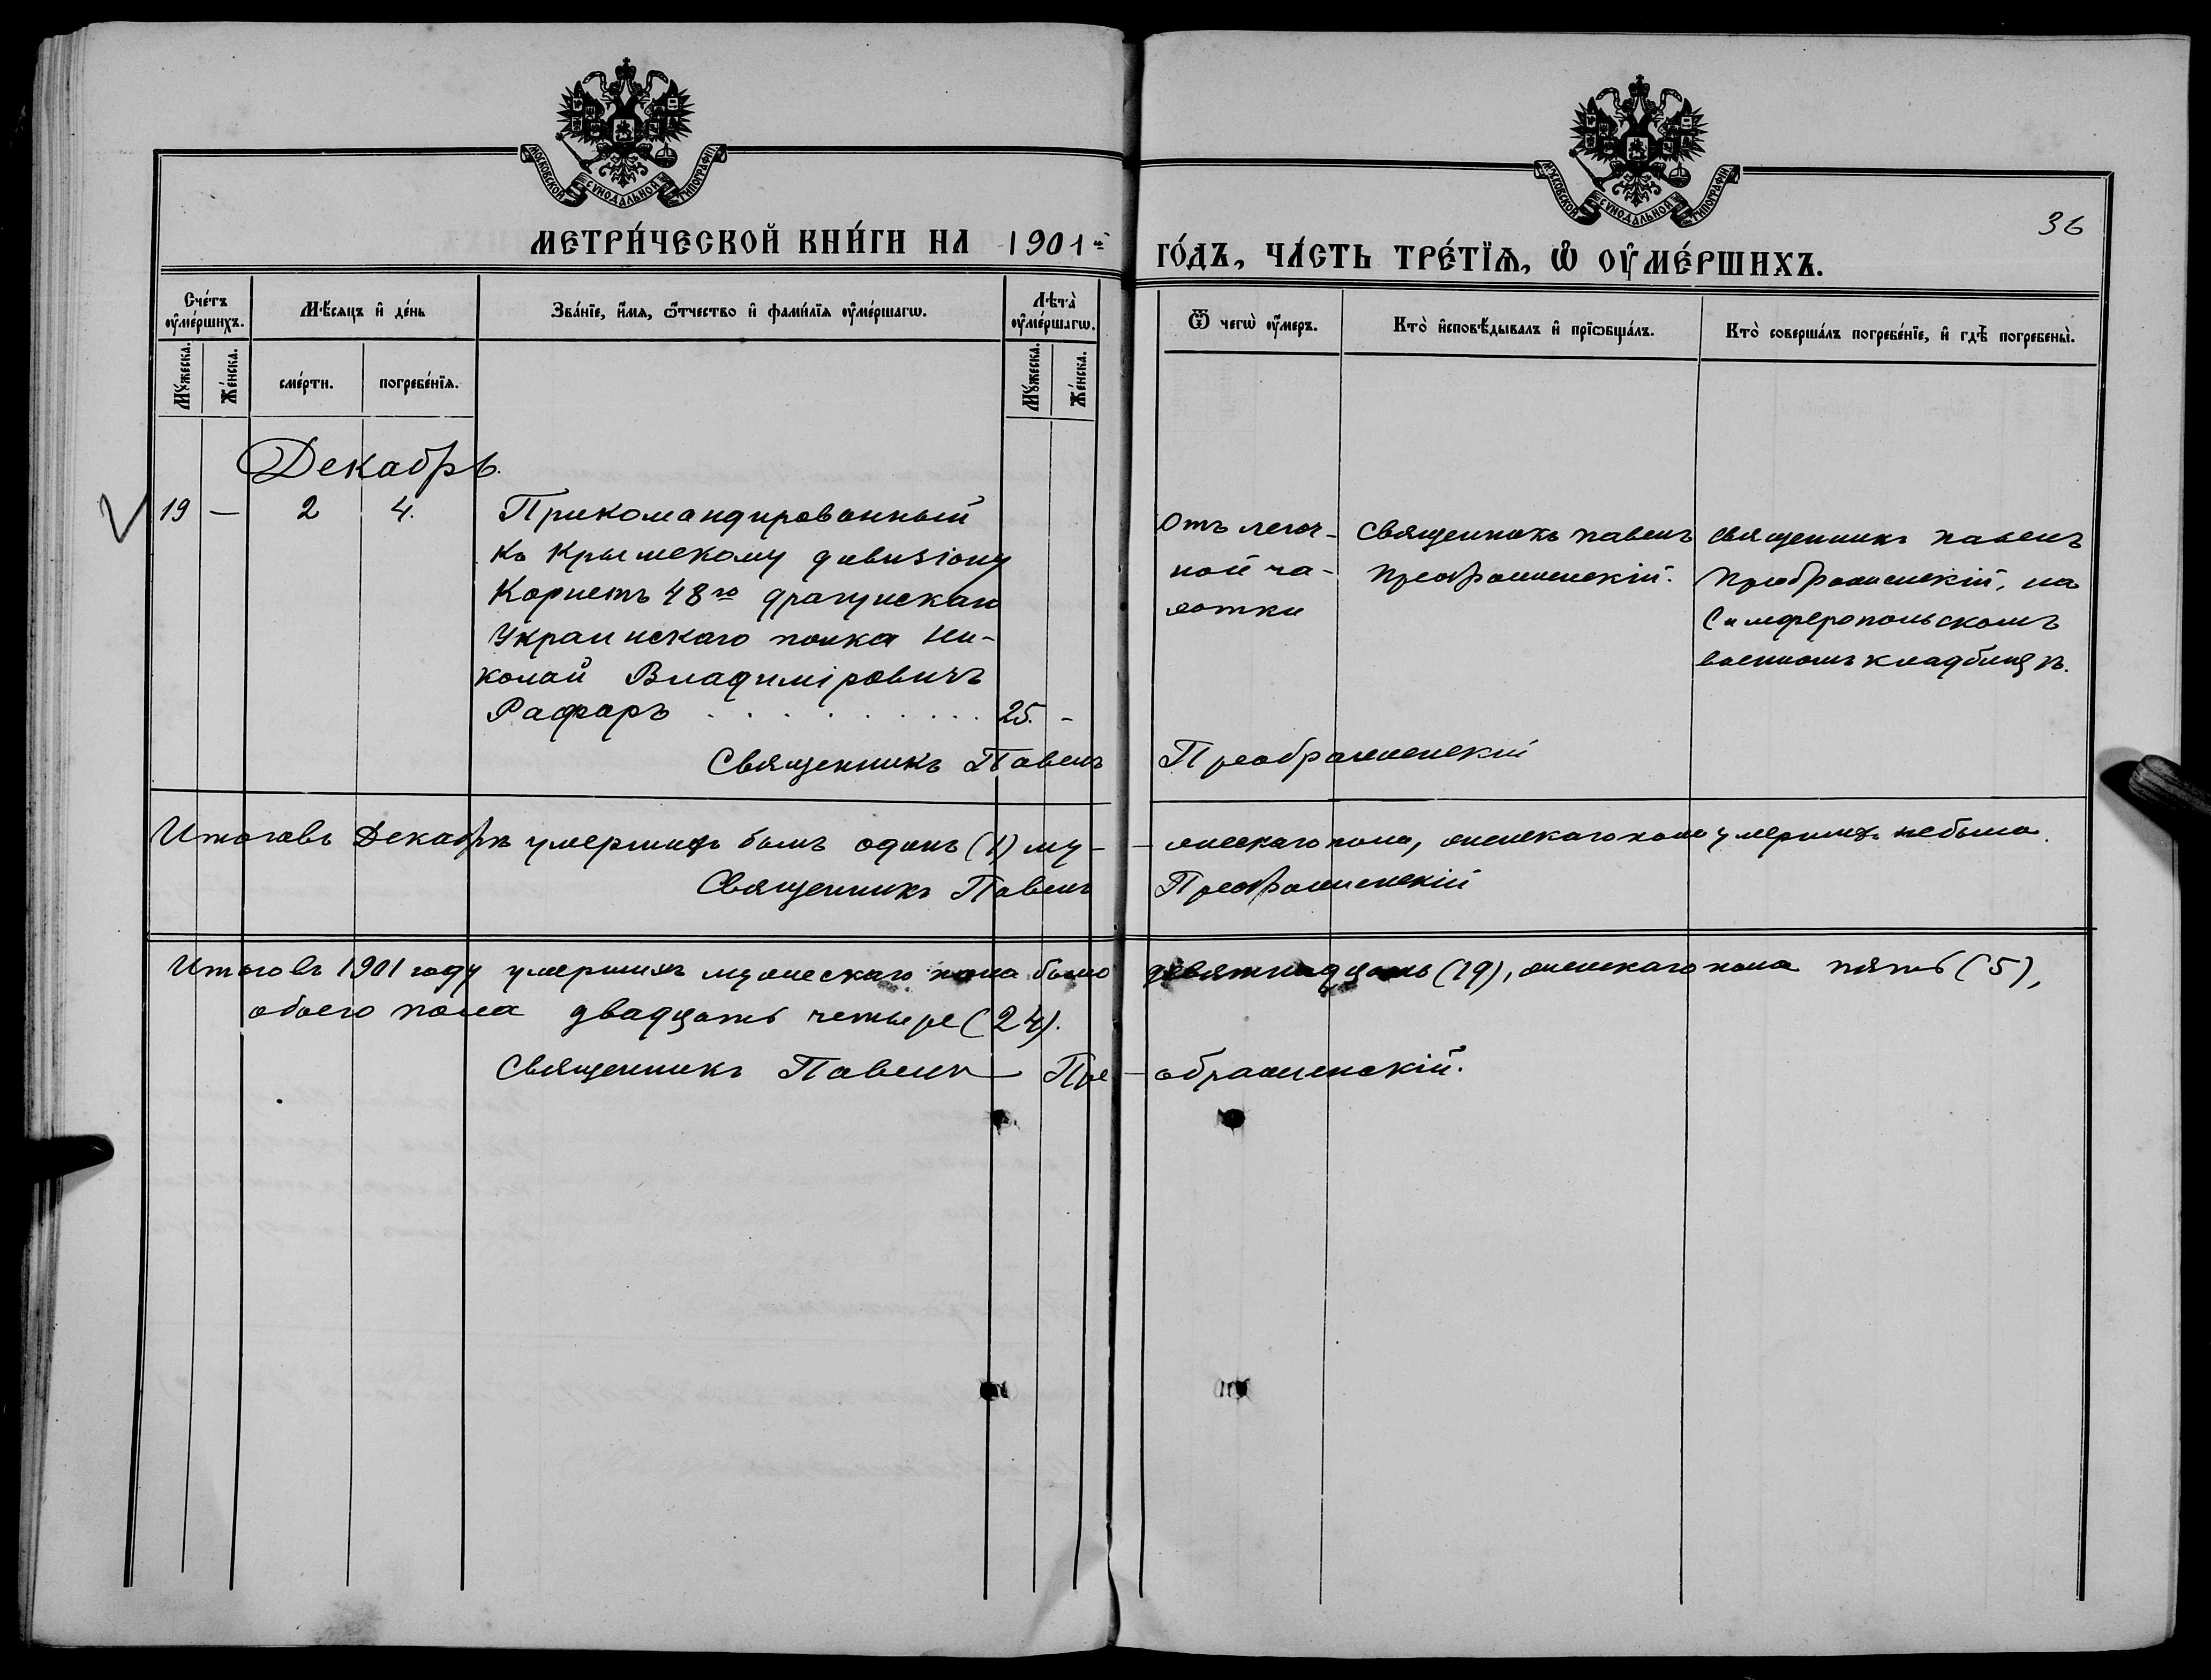 МОСКОВСКОЙ СѴНОДАЛЬНОЙ ТИПОГРАФІИ
МОСКОВСКОЙ СѴНОДАЛЬНОЙ ТИПОГРАФІИ
36
МЕТРИ́ЧЕСКОЙ КНИ́ГИ НА 1901й ГО́ДЪ, ЧА́СТЬ ТРЕ́ТЇѦ, Ѡ ОУМЕ́РШИХЪ.
Сче́тъ оумершихъ.
Мѣ́сяцъ и де́нь
Зва́нїе, и́мя, ѻтчество и фами́лїя оуме́ршагѡ.
Лѣта̀ оуме́ршагѡ.
Ѿ чегѡ̀ оумеръ.
Кто̀ исповѣ́дывалъ и прїѡбща́лъ.
Кто̀ соверша́лъ погребе́нїе, и гдѣ погребены̀.
Му́жеска.
Же́нска.
сме́рти.
погребе́нїя.
Му́жеска.
Же́нска.
Декабрь.
19 — 2 4. Прикомандированный
къ Крымскому дивизіону
Корнетъ 48го драгунскаго
Украинскаго полка Ни-
колай Владиміровичъ
Рафаръ . . . . . . . . . 25. -
Отъ легоч-
ной ча-
хотки
Священникъ Павелъ
Преображенскій.
Священникъ Павелъ
Преображенскій, на
Симферопольскомъ
военномъ кладбищѣ.
Священникъ Павелъ Преображенскій
Итого въ Декабрѣ умершихъ былъ одинъ (1) му- -жескаго пола, женскаго пола умершихъ не было.
Священникъ Павелъ Преображенскій
Итого въ 1901 году умершихъ мужескаго пола было девятнадцать (19), женскаго пола пять (5),
обоего пола двадцать четыре (24).
Священникъ Павелъ Пре-ображенскій.